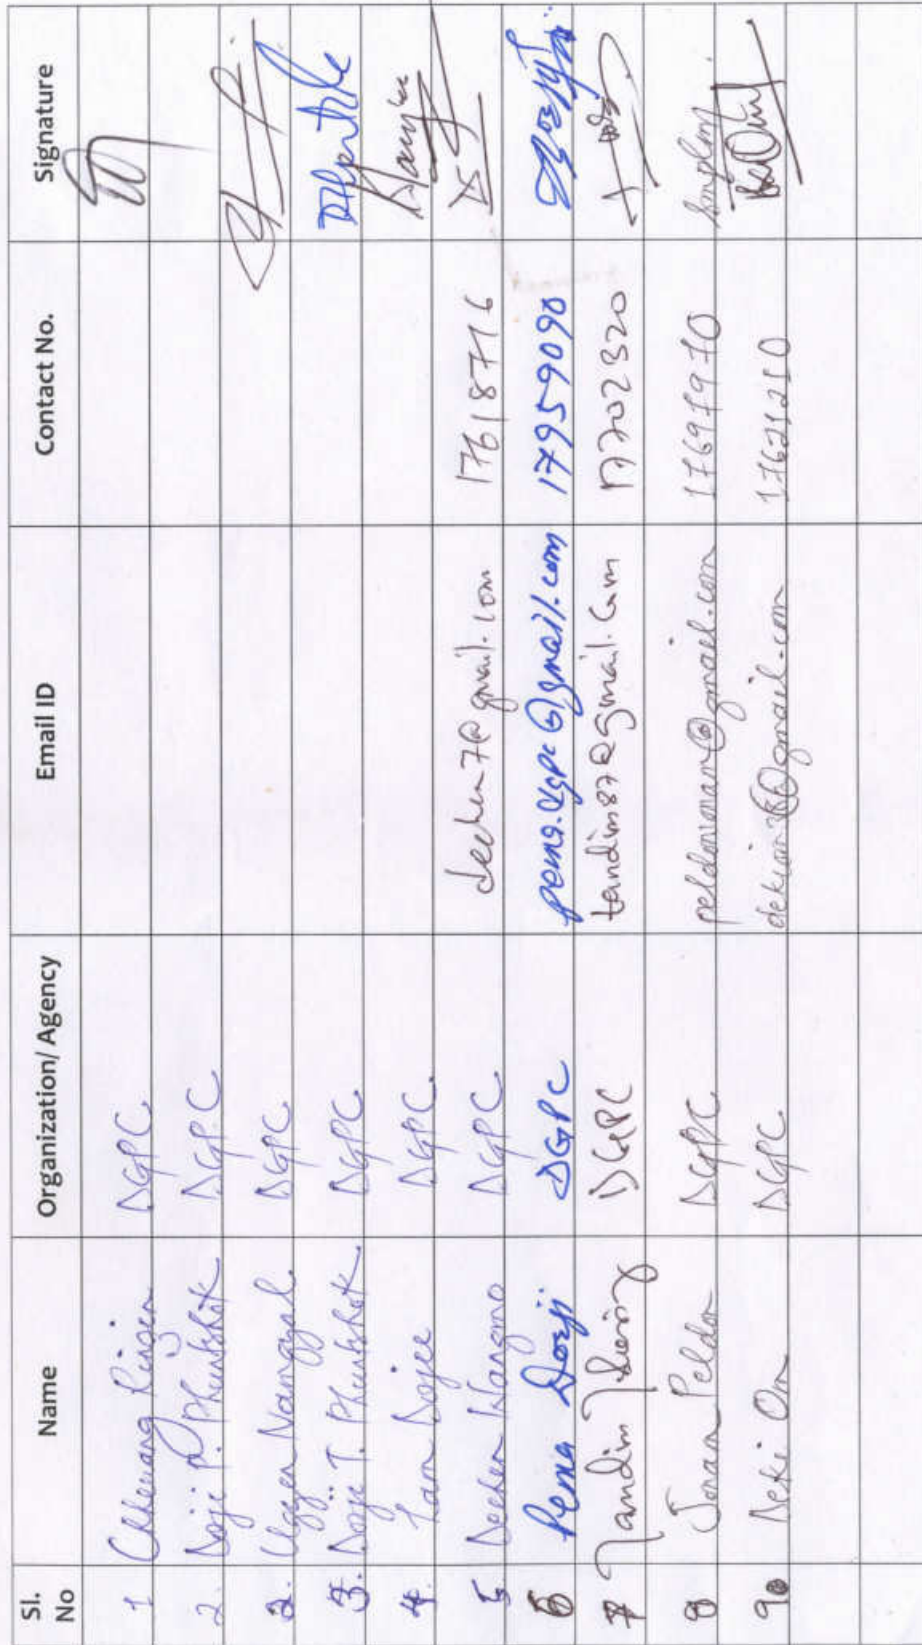 Sl. No Name Organization/ Agency Email ID Contact No. Signature
1 Chewang Rinzin DGPC
2. Dorji P. Phuntshok DGPC
2. Ugyen Namgyel DGPC
3. Dorji T. Phuntshok DGPC
4. Dorjee DGPC
5 Dechen Wangmo DGPC dechen7@gmail.com 17618716
6 Pema Dorji DGPC pema.dgpc@gmail.com 17959090
7 Tandin Tshering DGPC tandin87@gmail.com 17702320
8 Peldon DGPC 17697970
9 Deki Om DGPC